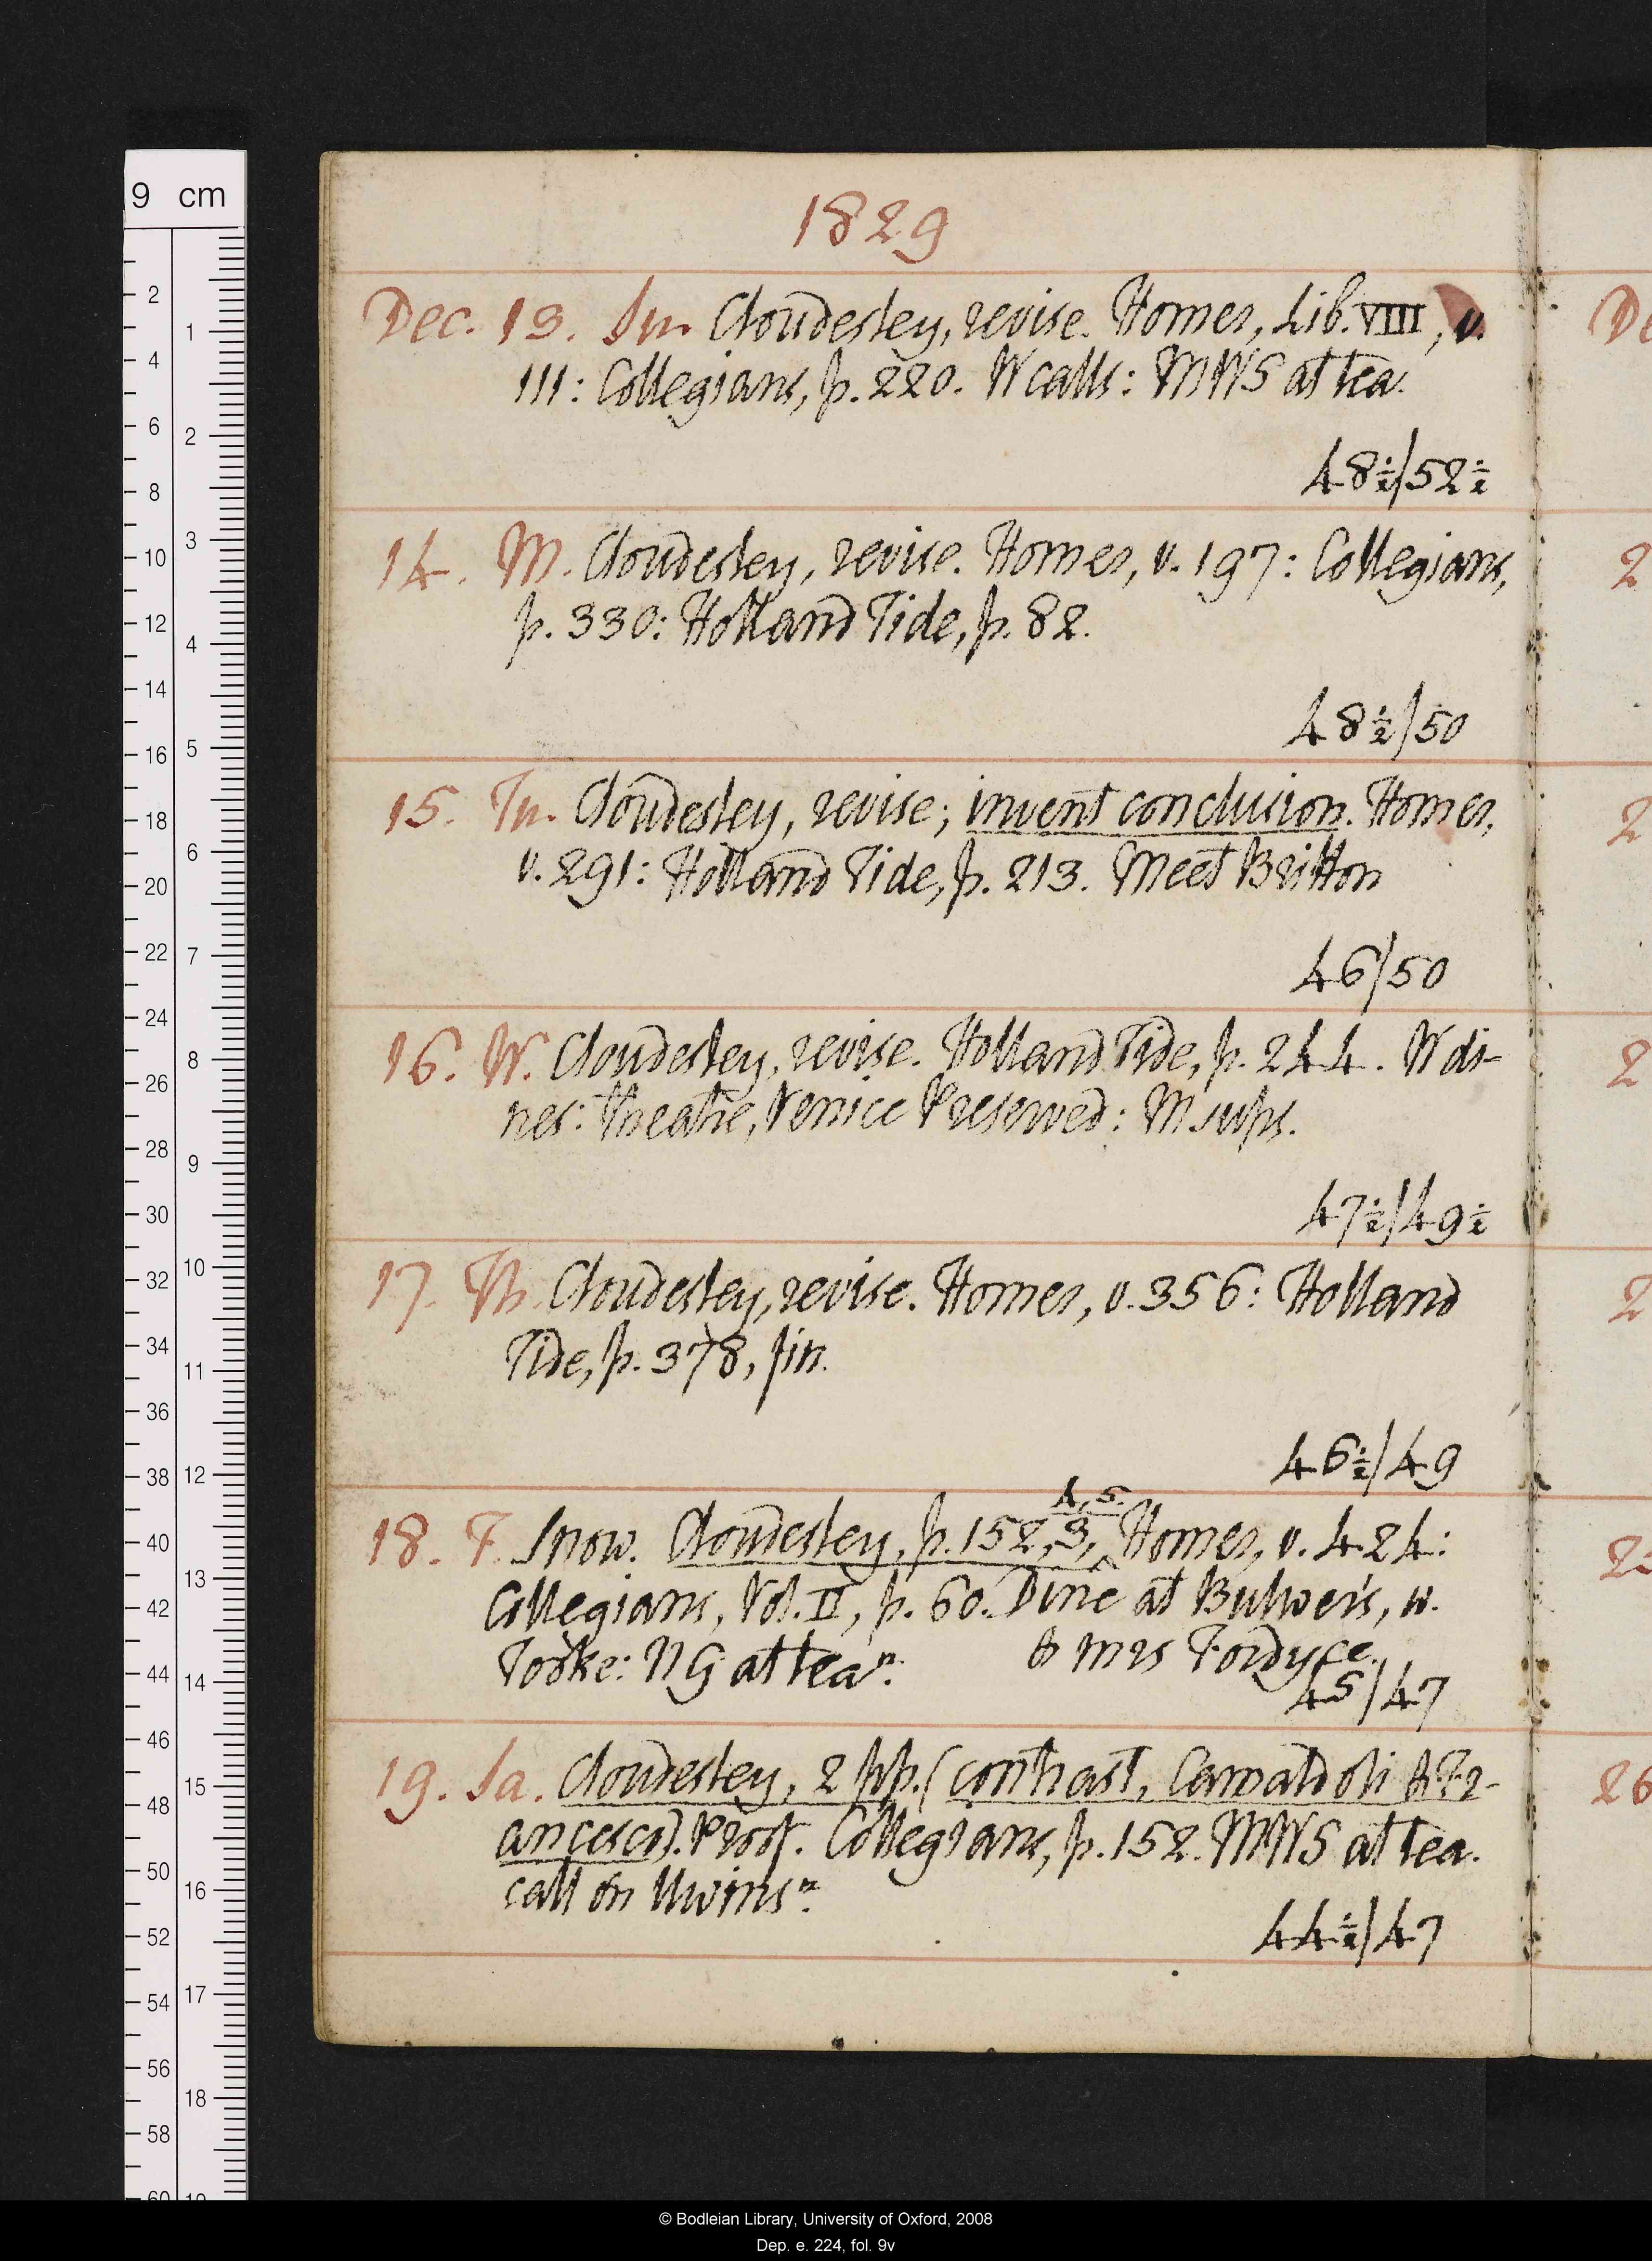 1829
Dec. 13. Su. Cloudesley, revise. Homer, Lib. VIII, v.
111: Collegians, p. 220. W calls: MWS at tea.
48½/52½
14. M. Cloudesley, revise. Homer, v. 197: Collegians,
p. 330: Holland Tide, p. 82.
48½/50
15. Tu. Cloudesley, revise; invent conclusion. Homer,
v. 291: Holland Tide, p. 213. Meet Britton
46/50
16. W. Cloudesley, revise. Holland Tide, p. 244. W di-
nes: theatre, Venice Preserved: M sups.
47½/49½
17. Th. Cloudesley, revise. Homer, v. 356: Holland
Tide, p. 378, fin.
46½/49
4, 5.
18. F. Snow. Cloudesley, p. 152, 3, ‸ Homer, v. 424:
Collegians, Vol. II, p. 60. Dine at Bulwer's, w.
Tooke: NG at tea n. & Mrs Fordyce.
45/47
19. Sa. Cloudesley, 2 pp. (contrast, Camaldoli & Fr-
ancesco). Proof. Collegians, p. 152. MWS at tea.
call on Uwins n.
44½/47
De
2
2
2
2
25
26
9 cm
2
4
6
8
10
12
14
16
18
20
22
24
26
28
30
32
34
36
38
40
42
44
46
48
50
52
54
56
58
60
1
2
3
4
5
6
7
8
9
10
11
12
13
14
15
16
17
18
19
© Bodleian Library, University of Oxford, 2008
Dep. e. 224, fol. 9v